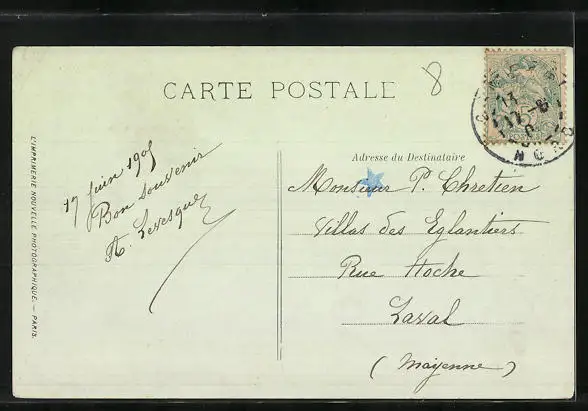 CARTE POSTALE
8
17 Juin 1905
Bon souvenir
A. Levesque
Adresse du Destinataire
Monsieur P. Chretien
Villas des Eglantiers
Rue Hoche
Laval
(Mayenne)
L'IMPRIMERIE NOUVELLE PHOTOGRAPHIQUE. — PARIS.